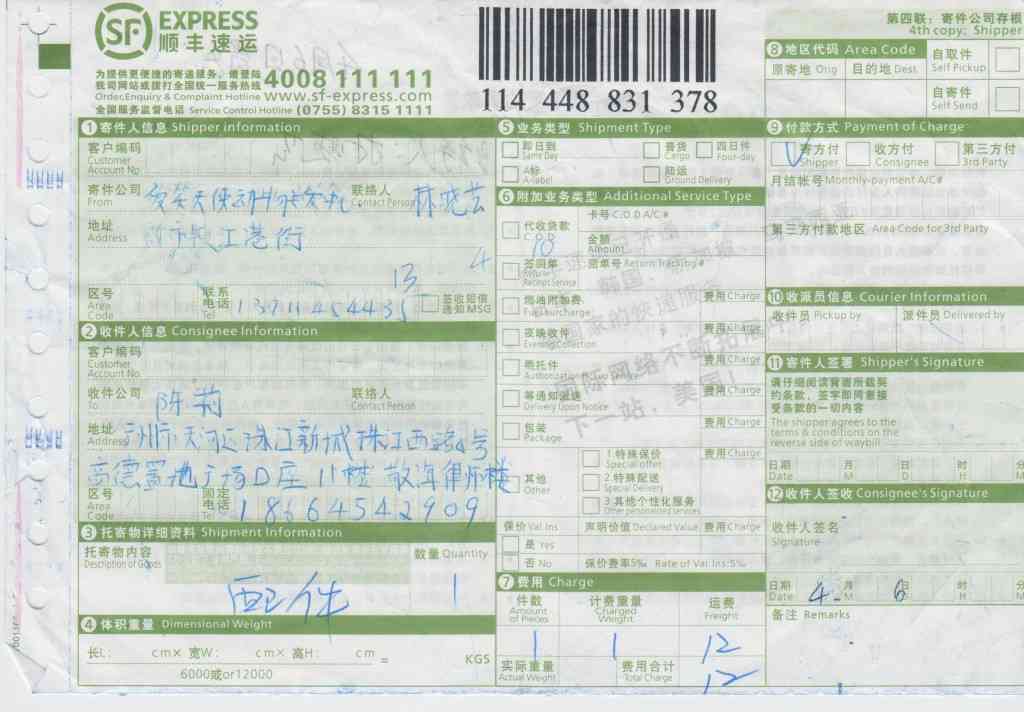 SF EXPRESS
顺丰速运
为提供更便捷的寄递服务，请登陆
我司网站或拨打全国统一服务热线 4008 111 111
Order, Enquiry & Complaint Hotline www.sf-express.com
全国服务监督电话 Service Control Hotline (0755) 8315 1111
114 448 831 378
第四联：寄件公司存根
4th copy: Shipper
8 地区代码 Area Code
原寄地 Orig 目的地 Dest.
自取件
Self Pickup
自寄件
Self Send
1 寄件人信息 Shipper information
客户编码
Customer
Account No
寄件公司
From
联络人
Contact Person
林晓芸
地址
Address
江港街
13 4
区号
Area
Code
联系
电话
Tel
13711454435
签收短信
通知MSG
2 收件人信息 Consignee Information
客户编码
Customer
Account No.
收件公司
To
陈莉
联络人
Contact Person
地址
Address
州市天河区珠江新城珠江西路8号
高德置地广场D座11楼 敬海律师楼
区号
Area
Code
固定
电话
Tel
18664542909
3 托寄物详细资料 Shipment Information
托寄物内容
Description of Goods
数量 Quantity
配件 1
4 体积重量 Dimensional Weight
长L: cm× 宽W: cm× 高H: cm = KGS
6000或or12000
5 业务类型 Shipment Type
即日到
Same Day
普货
Cargo
四日件
Four-day
A标
A-label
陆运
Ground Delivery
6 附加业务类型 Additional Service Type
代收货款
C.O.D
卡号 C.O.D A/C#
金额
Amount
签回单
Return
Receipt
Service
原单号 Return Tracking#
燃油附加费
Fuel surcharge
费用 Charge
夜晚收件
Evening Collection
费用 Charge
委托件
费用 Charge
等通知派送
Delivery Upon Notice
费用 Charge
包装
Package
费用 Charge
其他
Other
1.特殊保价
Special offer
2.特殊配送
Special Delivery
3.其他个性化服务
Other personalized services
国际网络不断拓展
下一站，美国！
保价 Val Ins
声明价值 Declared Value
费用 Charge
是 Yes
否 No
保价费率5‰ Rate of Val Ins:5‰
7 费用 Charge
件数
Amount
of Pieces
计费重量
Charged
Weight
运费
Freight
1 1 12
实际重量
Actual Weight
费用合计
Total Charge
12
9 付款方式 Payment of Charge
寄方付
Shipper
收方付
Consignee
第三方付
3rd Party
月结帐号 Monthly-payment A/C#
第三方付款地区 Area Code for 3rd Party
10 收派员信息 Courier Information
收件员 Pickup by
派件员 Delivered by
11 寄件人签署 Shipper's Signature
请仔细阅读背面所载契
约条款，签字即同意接
受条款的一切内容
The shipper agrees to the
terms & conditions on the
reverse side of waybill
日期
Date
月
M
日
D
时
H
分
M
12 收件人签收 Consignee's Signature
收件人签名
Signature
日期
Date
4
月
M
6
日
D
时
H
分
M
备注 Remarks